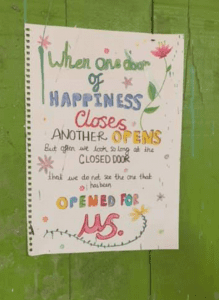 When one door
of
HAPPINESS
Closes
ANOTHER OPENS
But often we look so long at the
CLOSED DOOR
that we do not see the one that
has been
OPENED FOR
US.